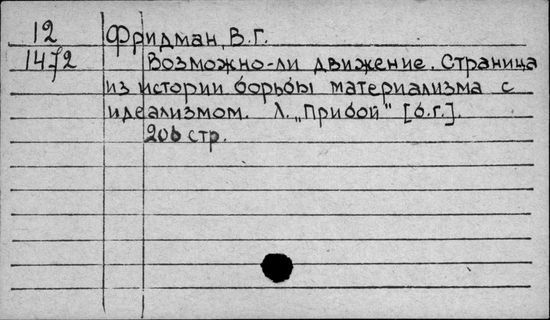 12 Фридман, В.Г.
1472 Возможно-ли движение. Страница
из истории борьбы материализма с
идеализмом. Л. „Прибой" [б.г.].
206 стр.